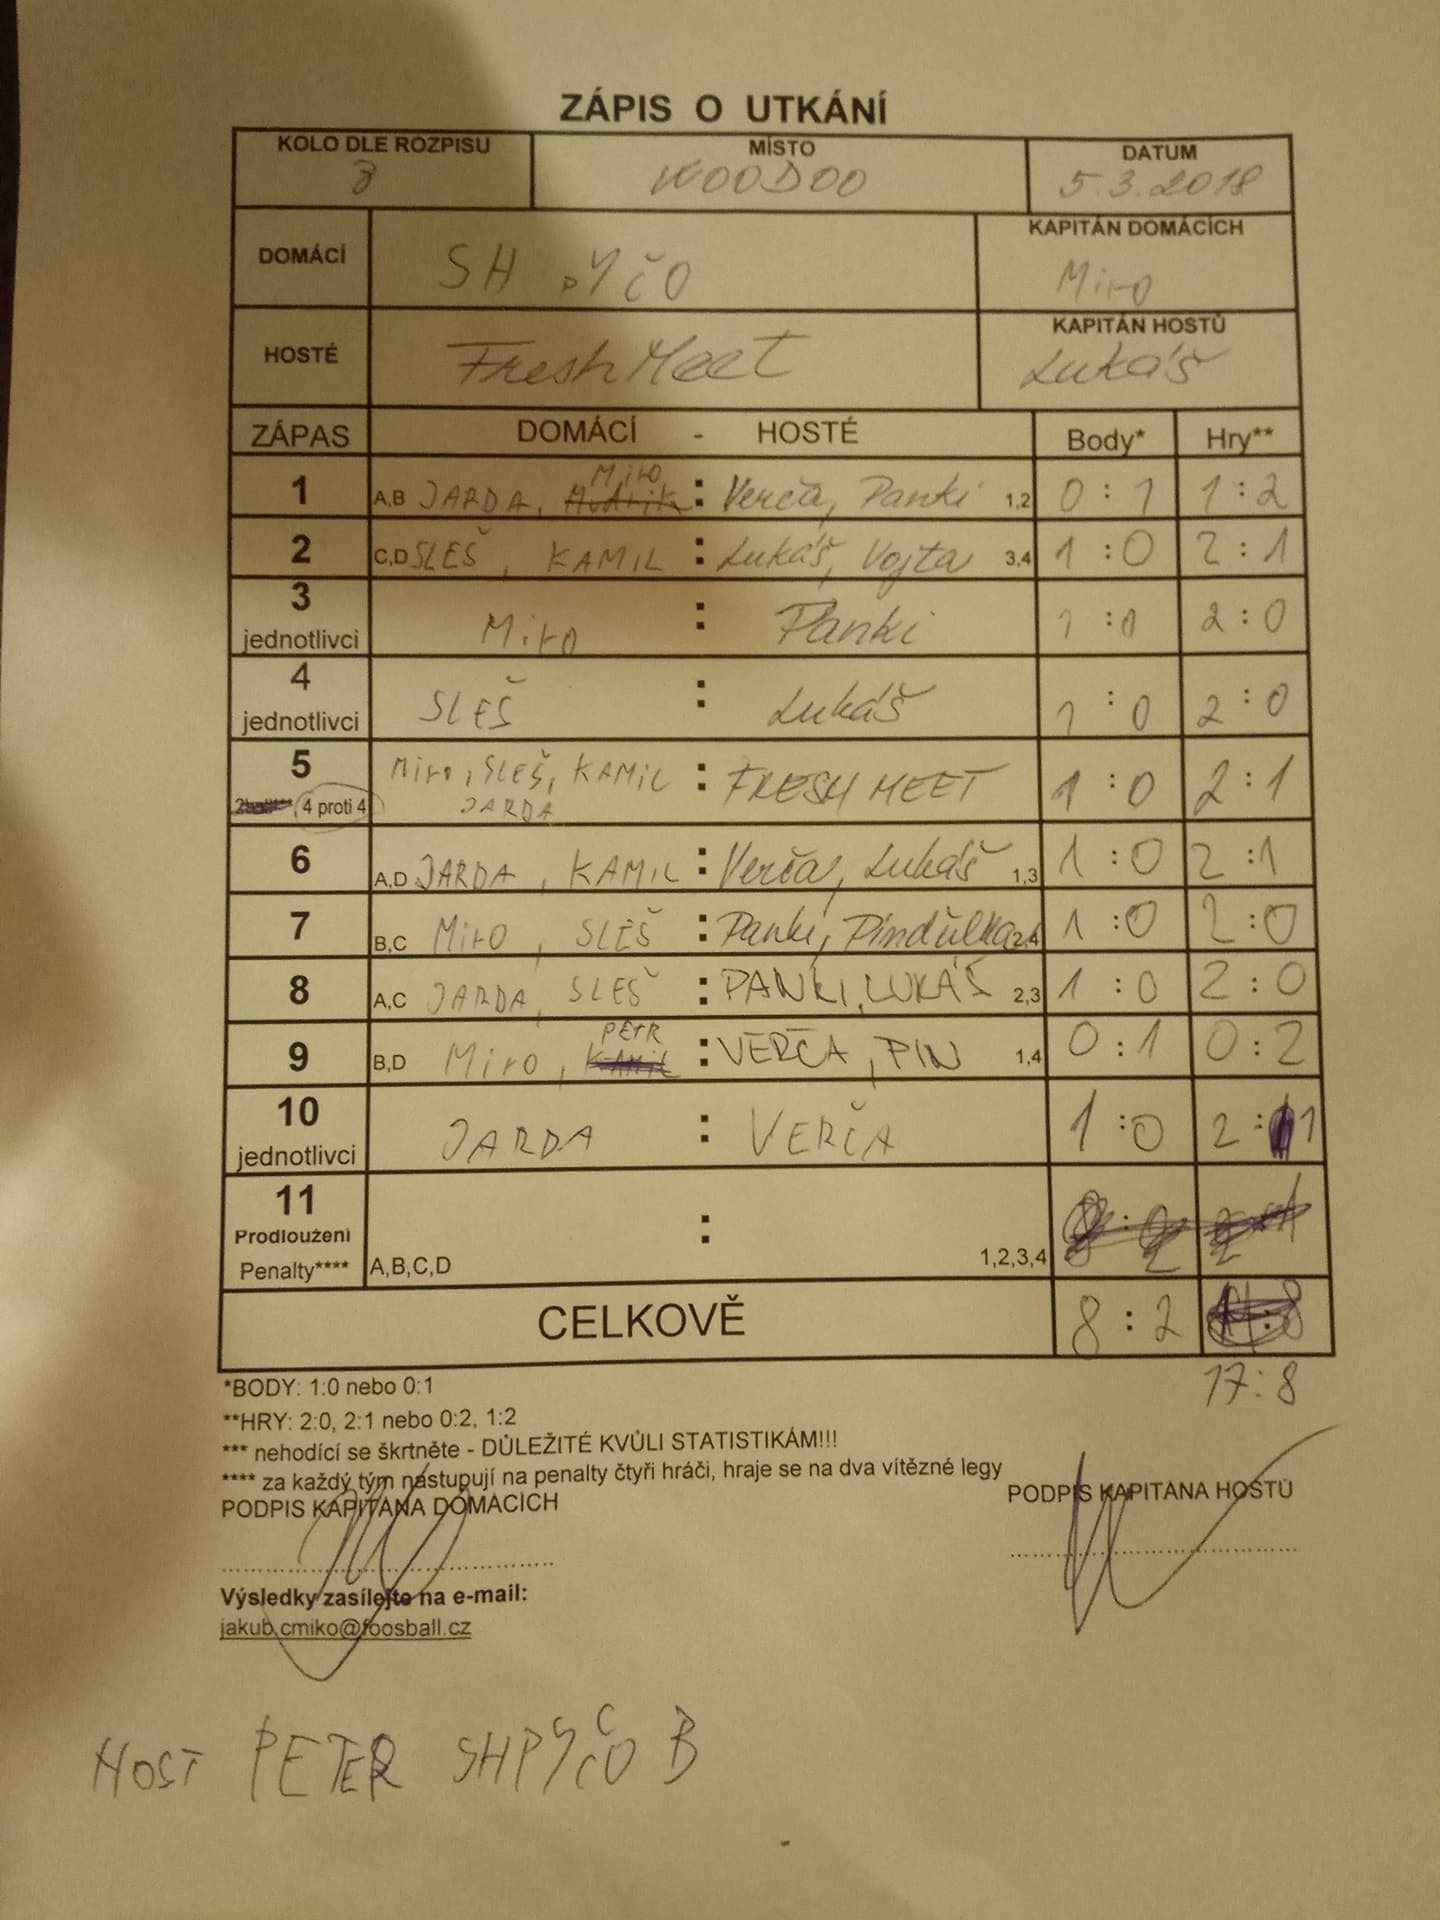 ZÁPIS O UTKÁNÍ
KOLO DLE ROZPISU MÍSTO DATUM
WOODOO 5.3.2018
DOMÁCÍ SH PYČO KAPITÁN DOMÁCÍCH
Miro
HOSTÉ FreshMeet KAPITÁN HOSTŮ
Lukáš
ZÁPAS DOMÁCÍ - HOSTÉ Body* Hry**
1 A,B JARDA, Miro : Verča, Panki 1,2 0:1 1:2
2 C,D SLEŠ, KAMIL : Lukáš, Vojta 3,4 1:0 2:1
3 Miro : Panki 1:0 2:0
jednotlivci
4 SLEŠ : Lukáš 1:0 2:0
jednotlivci
5 Miro, SLEŠ, KAMIL : FRESH MEET 1:0 2:1
, 4 proti 4 JARDA
6 A,D JARDA, KAMIL : Verča, Lukáš 1,3 1:0 2:1
7 B,C Miro, SLEŠ : Panki, Pindůlka 2,4 1:0 2:0
8 A,C JARDA, SLEŠ : PANKI, LUKÁŠ 2,3 1:0 2:0
PETR
9 B,D Miro, Kamil : VERČA, PIN 1,4 0:1 0:2
10 JARDA : VERČA 1:0 2:1
jednotlivci
11 :
Prodloužení
Penalty**** A,B,C,D 1,2,3,4
CELKOVĚ 8:2
17:8
*BODY: 1:0 nebo 0:1
**HRY: 2:0, 2:1 nebo 0:2, 1:2
*** nehodící se škrtněte - DŮLEŽITÉ KVŮLI STATISTIKÁM!!!
**** za každý tým nastupují na penalty čtyři hráči, hraje se na dva vítězné legy
PODPIS KAPITÁNA DOMÁCÍCH PODPIS KAPITÁNA HOSTŮ
Výsledky zasílejte na e-mail:
jakub.cmiko@foosball.cz
HOST PETER SHPYČO B